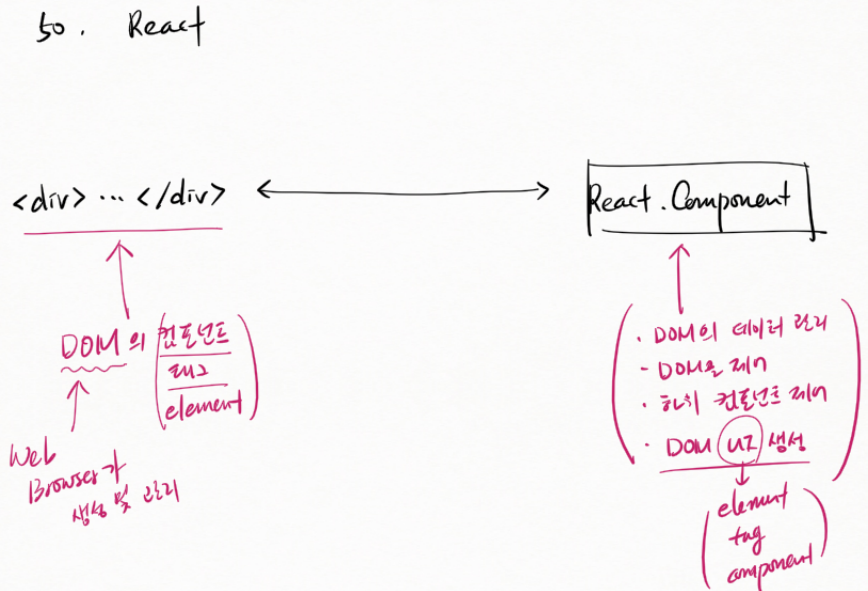 50. React
<div> ... </div>
React.Component
DOM의 컴포넌트
태그
element
Web
Browser가
생성 및 관리
· DOM의 데이터 관리
- DOM을 제어
· 하위 컴포넌트 제어
· DOM UI 생성
element
tag
component